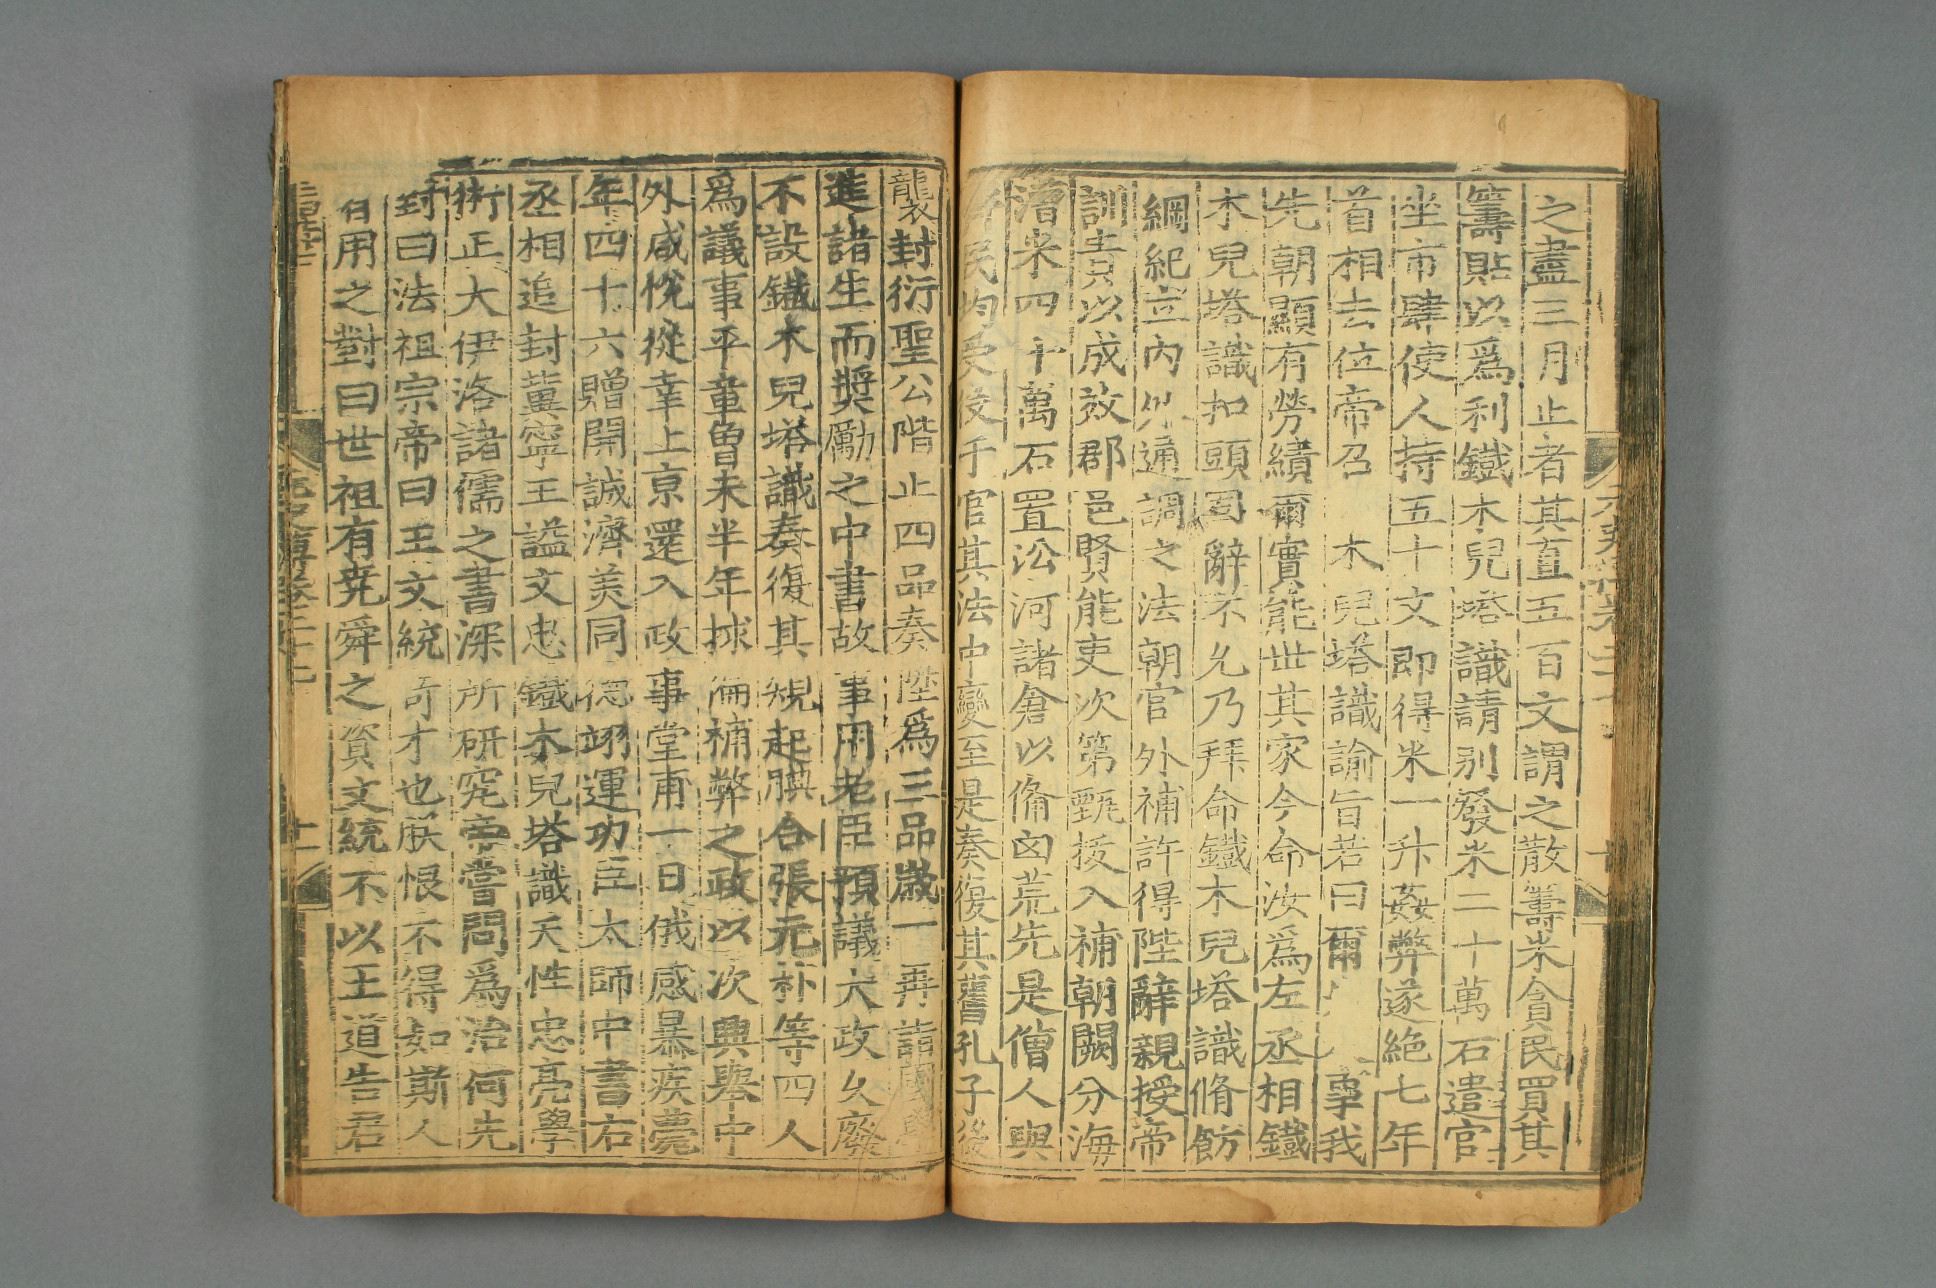 之盡三月止者其直五百文謂之散籌米貪民買其
籌貼以爲利鐵木兒塔識請别發米二十萬石遣官
坐市肆使人持五十文即得米一升姦弊遂絶七年
首相去位帝召 木兒塔識諭旨若曰爾 事我
先朝顯有勞績爾實能世其家今命汝爲左丞相鐵
木兒塔識扣頭固辭不允乃拜命鐵木兒塔識脩飭
綱紀立内外通調之法朝官外補許得陛辭親授帝
訓責以成效郡邑賢能吏次第甄拔入補朝闕分海
漕米四十萬石置㳂河諸倉以備凶荒先是僧人與
齊民均受役于官其法中變至是奏復其舊孔子後
襲封衍聖公階止四品奏陞爲三品歲一再詣國學
進諸生而奬勵之中書故事用老臣預議大政久廢
不設鐵木兒塔識奏復其規起腆合張元朴等四人
爲議事平章曾未半年捄偏補弊之政以次興舉中
外咸悅從幸上京還入政事堂甫一日俄感暴疾薨
年四十六贈開誠濟美同德翊運功臣太師中書右
丞相追封冀寧王謚文忠鐵木兒塔識天性忠亮學
術正大伊洛諸儒之書深所研究帝嘗問爲治何先
對曰法祖宗帝曰王文統奇才也朕恨不得如斯人
者用之對曰世祖有堯舜之資文統不以王道告君